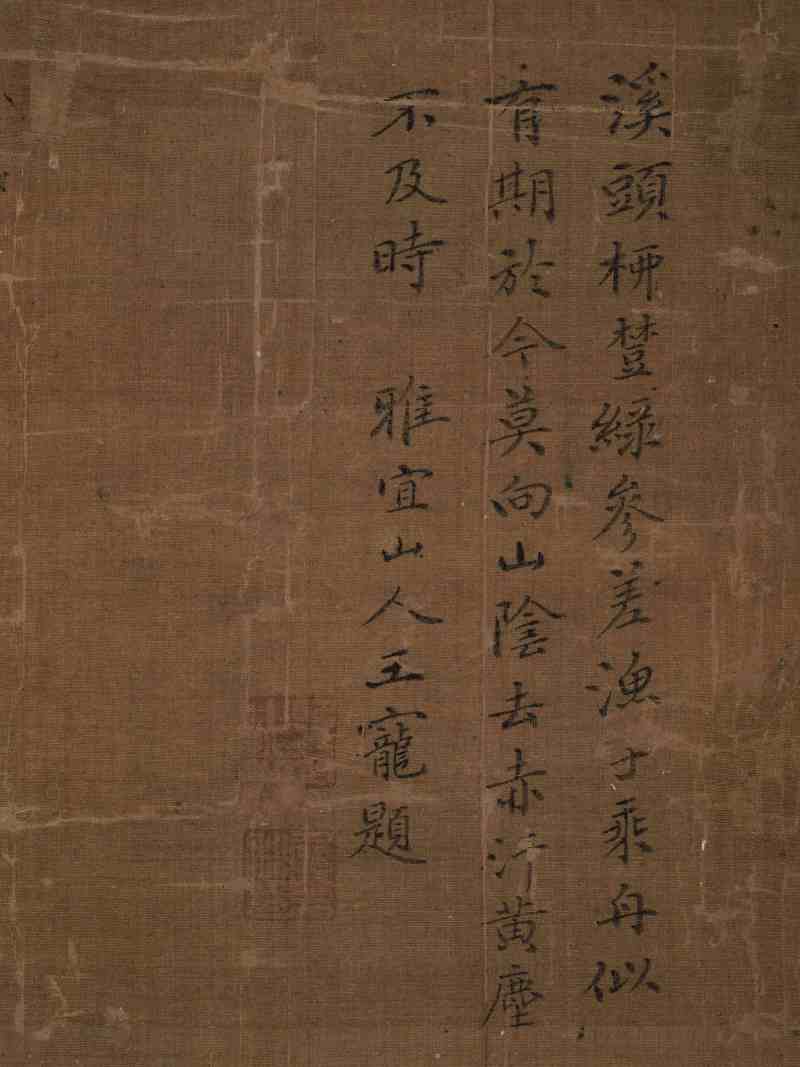 溪頭綠參差漁士乘舟似
有期於今莫向山陰去赤汗黃塵
不及時 雅宜山人王寵題